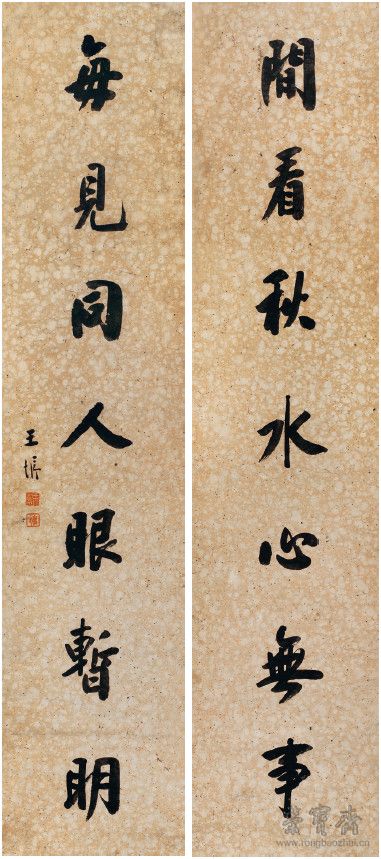 間看秋水心無事
每見同人眼暫明
王
榮寶齋
www.rongbaozhai.cn